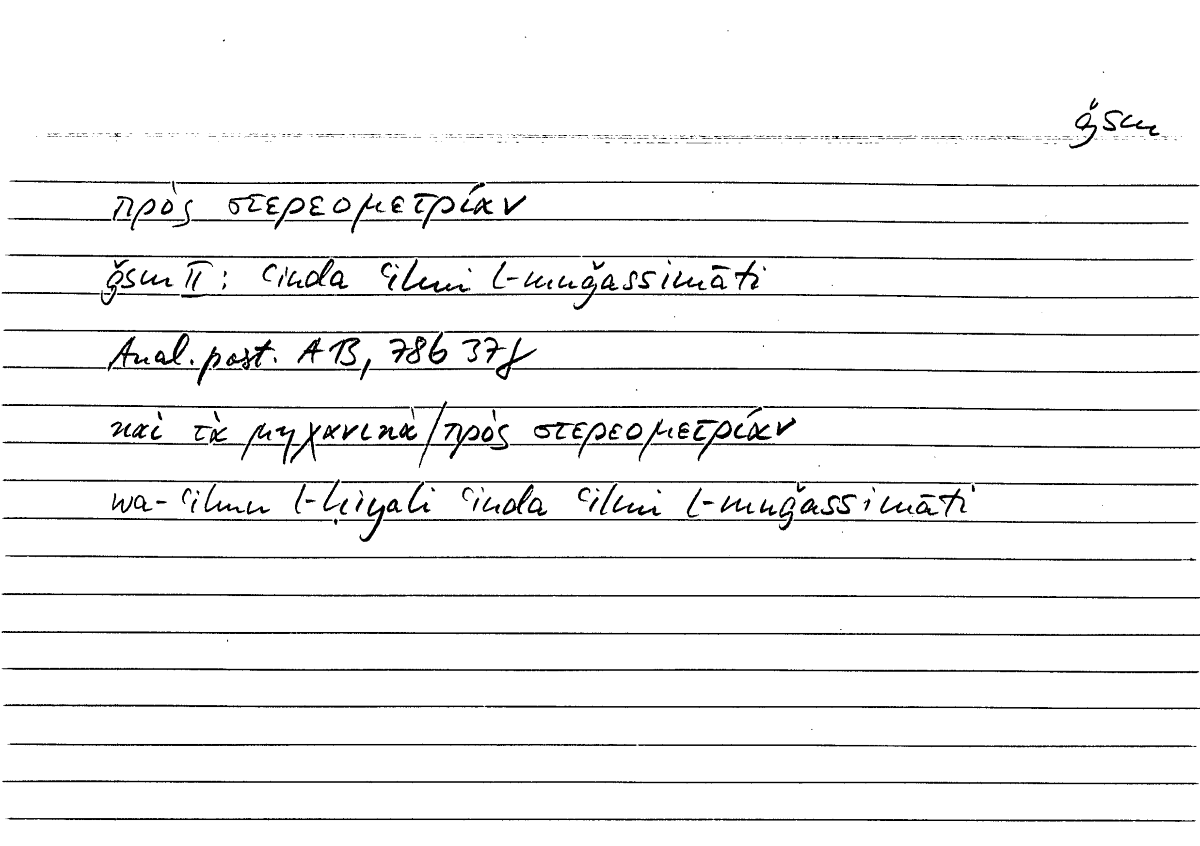 ǧsm
πρὸς στερεομετρίαν
ǧsm II: ʿinda ʿilmi l-muǧassimāti
Anal. post. A 13, 78b 37f
καὶ τὰ μηχανικὰ/πρὸς στερεομετρίαν
wa-ʿilmu l-ḥiyali ʿinda ʿilmi l-muǧassimāti